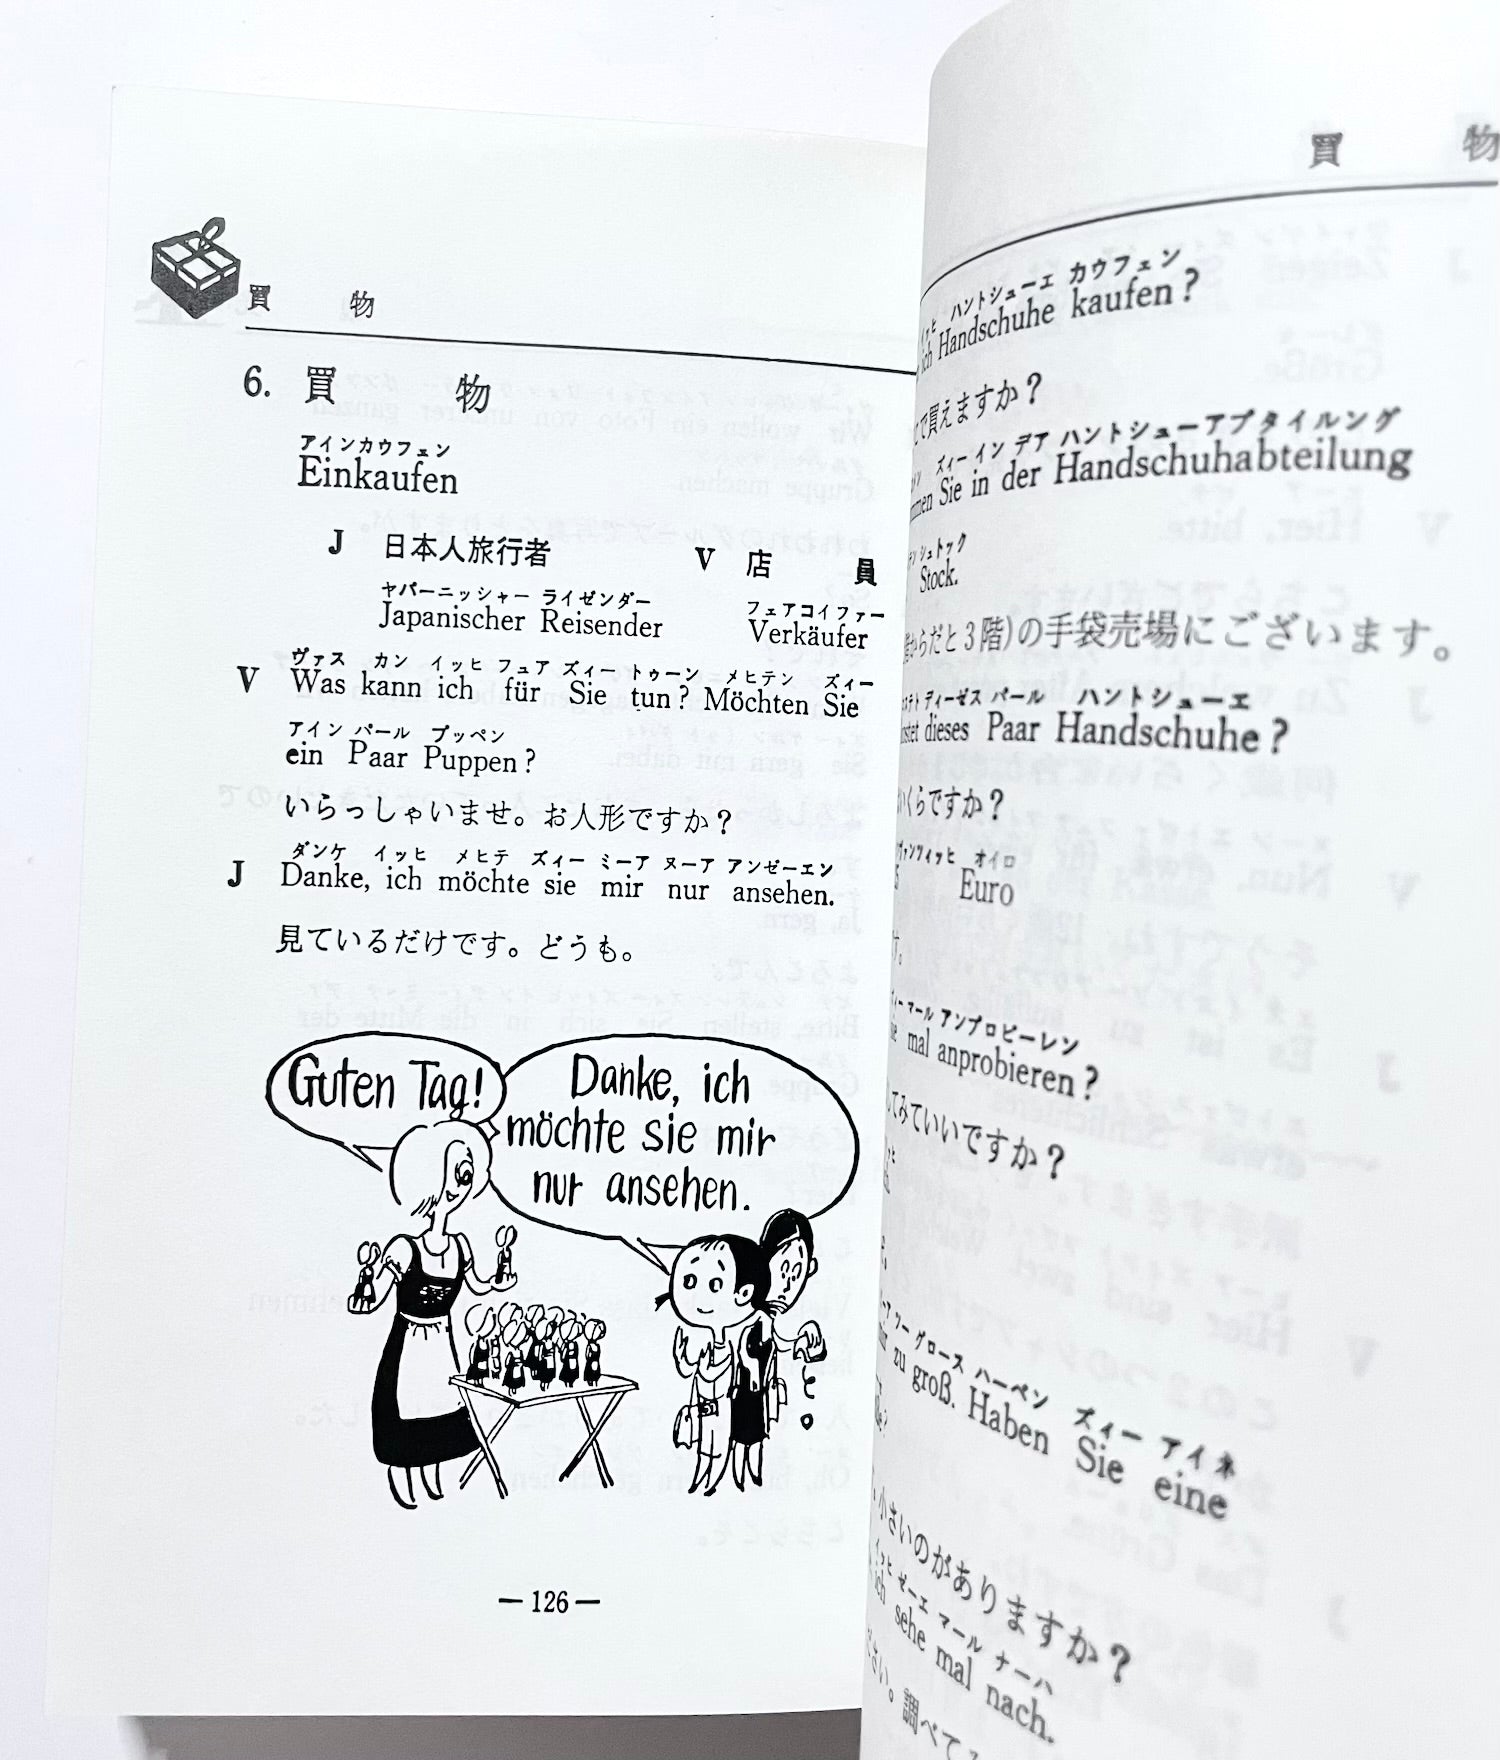 買 物
6. 買 物
アインカウフェン
Einkaufen
J 日本人旅行者 V 店 員
ヤパーニッシャー ライゼンダー フェアコイファー
Japanischer Reisender Verkäufer
ヴァス カン イッヒ フュア ズィー トゥーン メヒテン ズィー
V Was kann ich für Sie tun? Möchten Sie
アイン パール プッペン
ein Paar Puppen?
いらっしゃいませ。お人形ですか?
ダンケ イッヒ メヒテ ズィー ミーア ヌーア アンゼーエン
J Danke, ich möchte sie mir nur ansehen.
見ているだけです。どうも。
Guten Tag!
Danke, ich
möchte sie mir
nur ansehen.
—126—
買 物
イッヒ ハントシューエ カウフェン
ich Handschuhe kaufen?
で買えますか?
ズィー イン デア ハントシューアプタイルング
Sie in der Handschuhabteilung
シュトック
Stock.
からだと3階)の手袋売場にございます。
ディーゼス パール ハントシューエ
dieses Paar Handschuhe?
いくらですか?
オイロ
Euro
マール アンプロビーレン
mal anprobieren?
してみていいですか?
ツー グロース ハーベン ズィー アイネ
zu groß. Haben Sie eine
小さいのがありますか?
イッヒ ゼーエ マール ナーハ
ich sehe mal nach.
調べて